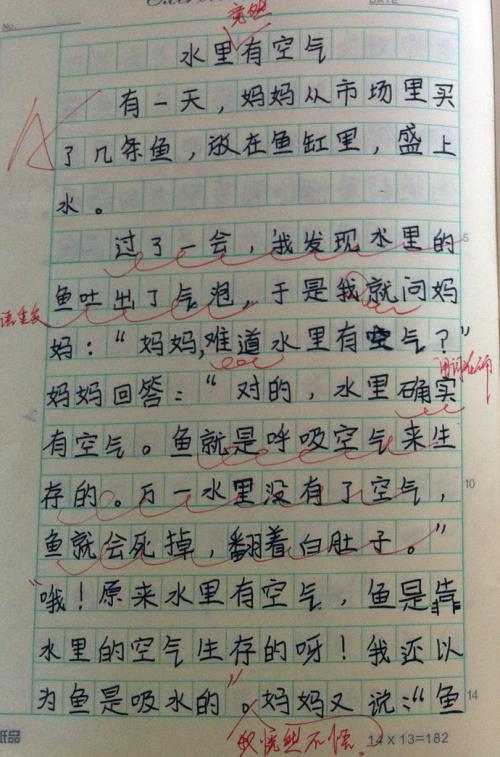 No.
DATE
竟然
水里有空气
有一天，妈妈从市场里买
了几条鱼，放在鱼缸里，盛上
水。
过了一会，我发现水里的
5
鱼吐出了气泡，于是我就问妈
妈：“妈妈，难道水里有空气？”
妈妈回答：“对的，水里确实
用词准确
有空气。鱼就是呼吸空气来生
存的。万一水里没有了空气，
10
鱼就会死掉，翻着白肚子。”
“哦！原来水里有空气，鱼是靠
水里的空气生存的呀！我还以
为鱼是吸水的”。妈妈又说：“鱼
14
我恍然大悟
纸品
14×13=182